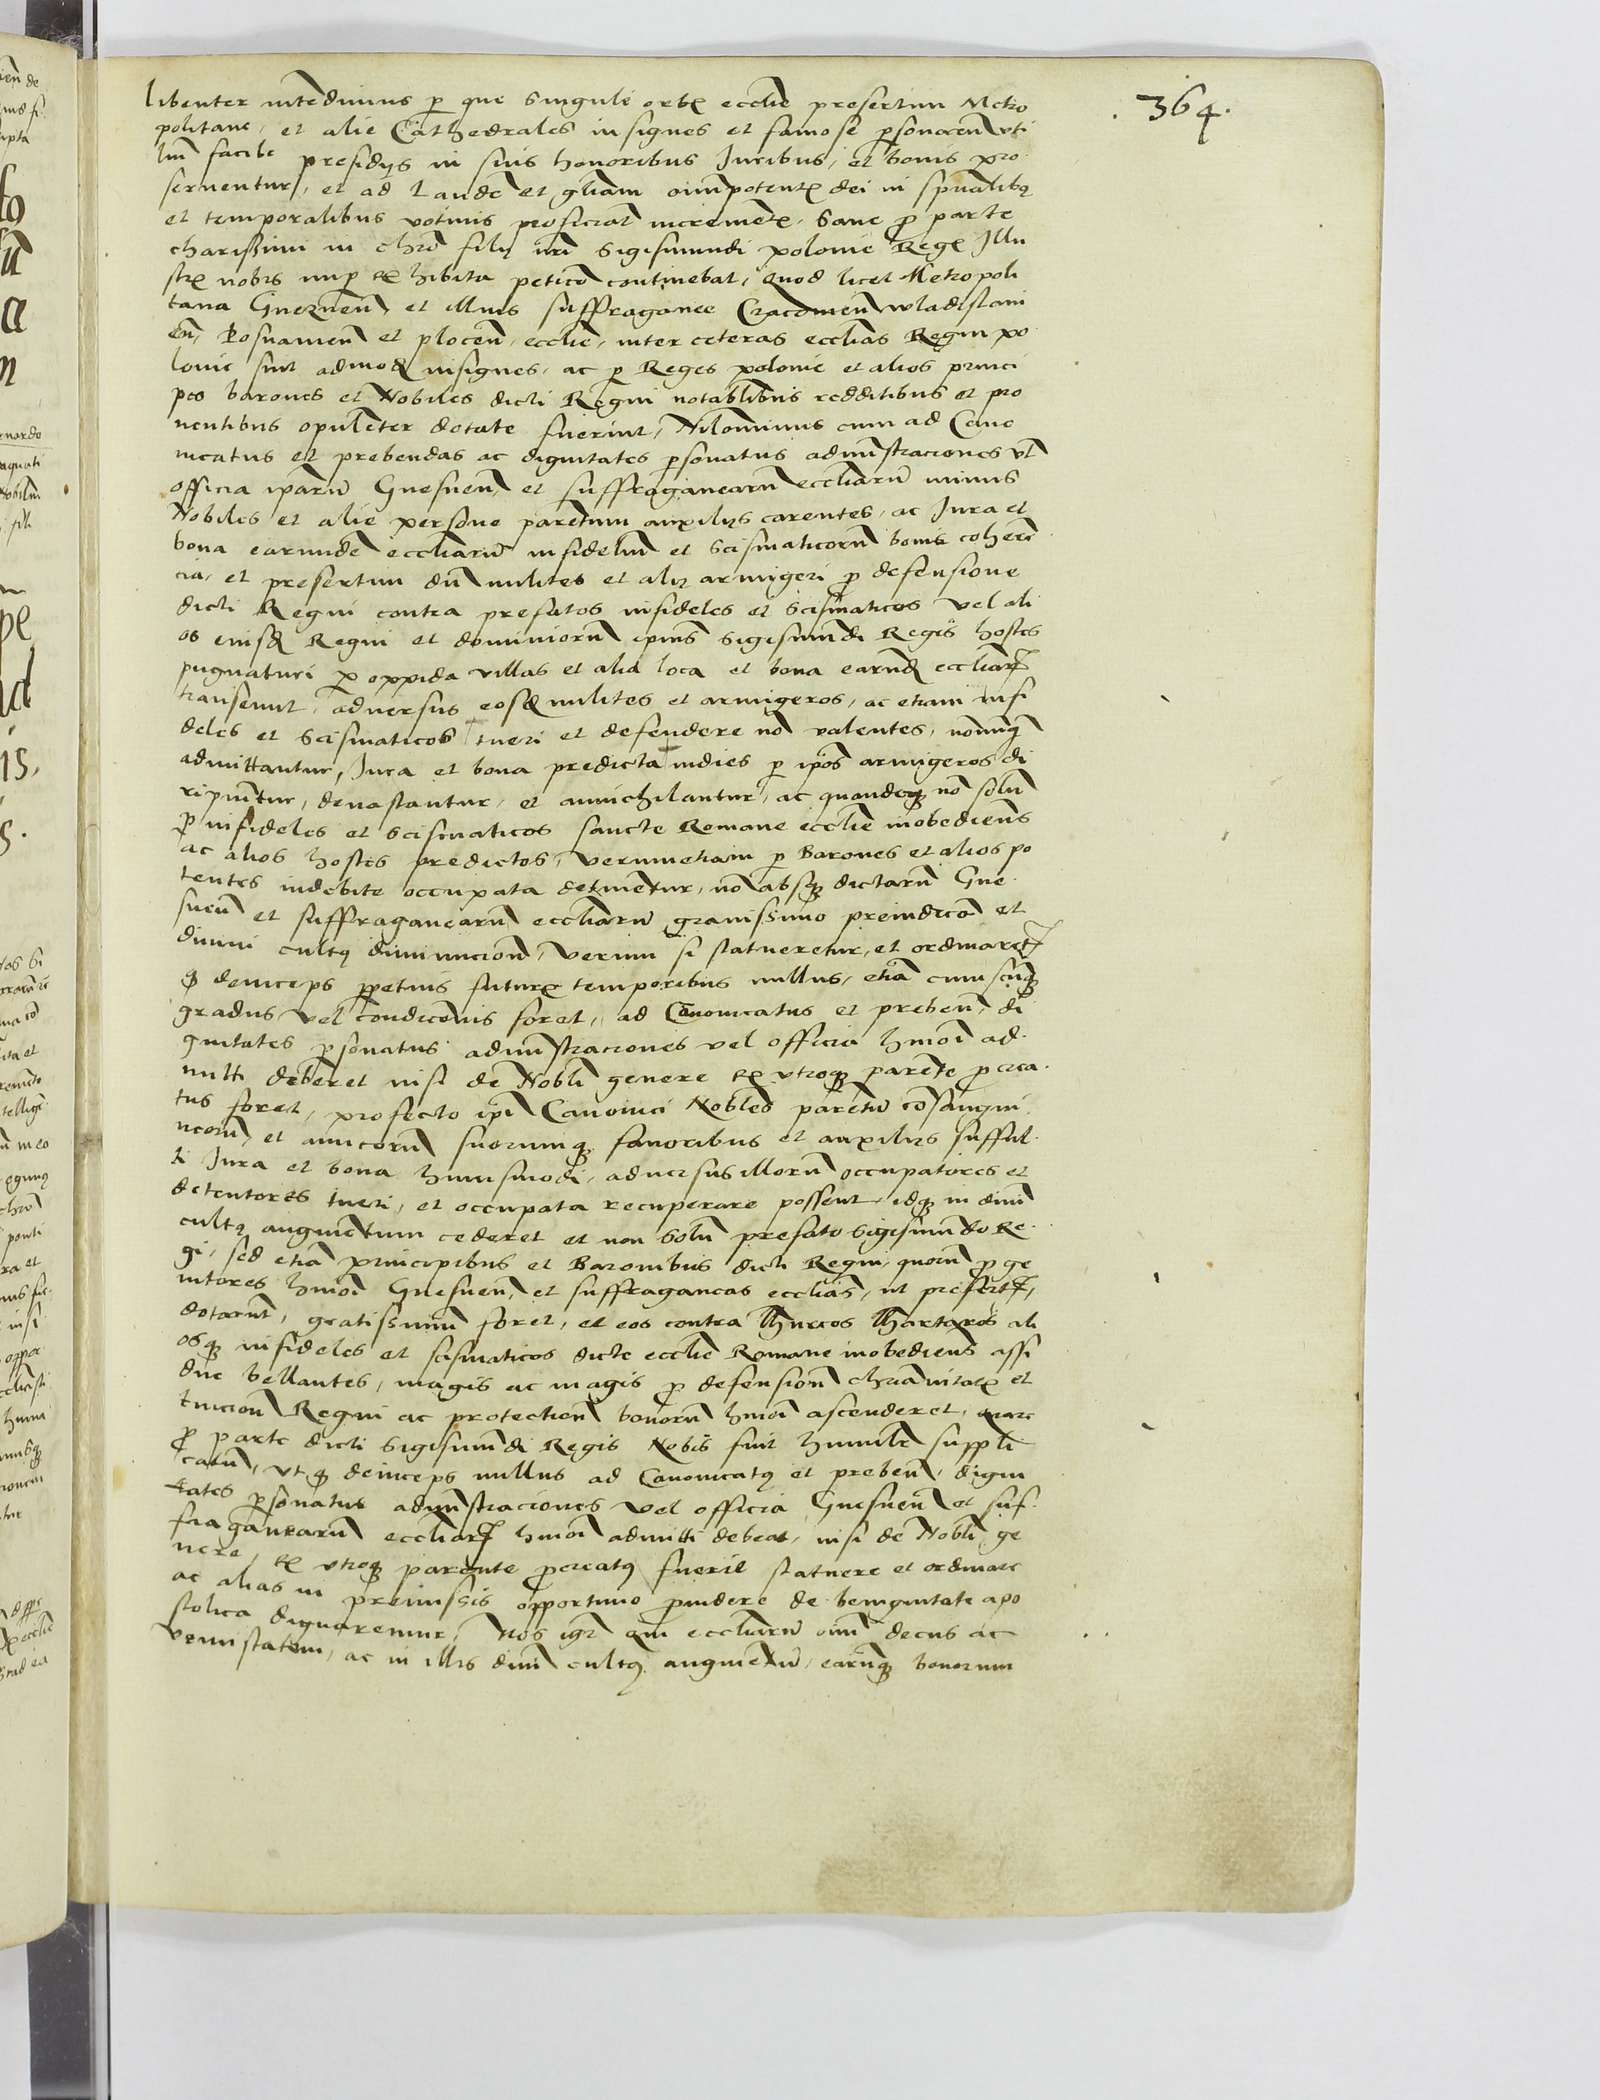 364.
libenter intẽdimus p que Singule orbis ecclie presertim Metro
politane, et alie Cathedrales insignes et famose psonarum uti
lium presidijs in suis honoribus Juribus, et bonis pre
seruentur, et ad Laudẽ et gliam oimpotentis dei in spualibꝫ
et temporalibus votiuis proficiat incremẽtis. Sane p parte
charissimi in chro filij nri Sigismundi polonie Regis Illu
stris nobis nup exhibita peticõ continebat, quod licet Metropoli
tana Gneznẽn et illius suffraganee Cracouien wladislaui
en, Posnanien et plocen, ecclie, inter ceteras ecclias Regni po
lonie sint admodũ insignes, ac p Reges polonie et alios princi
pes barones et Nobiles dicti Regni notabilibus redditibus et pro
uentibus opulẽter dotate fuerint, Nilominus cum ad Cano
nicatus et prebendas ac dignitates psonatus administraciones vl
officia iparũ Gnesnen, et suffraganearũ eccliarũ minus
Nobiles et alie persone parentum auxilijs carentes, ac Jura et
bona earundẽ eccliarũ infideliũ et Scismaticorũ bonis coherẽ
cia, et presertim dũ milites et alij armigeri p defensione
dicti Regni contra prefatos infideles et scismaticos vel ali
os eiusdẽ Regni et dominiorũ ipius Sigismundi Regis hostes
pugnaturi p oppida villas et alia loca et bona earũdẽ eccliarũ
transeunt, aduersus eosdẽ milites et armigeros, ac etiam infi
deles et Scismaticos tueri et defendere nõ valentes, nonnunq̃
admittantur, Jura et bona predicta indies p ipos armigeros di
ripiuntur, deuastantur, et annichilantur, ac quandoqꝫ nõ solũ
p infideles et Scismaticos sancte Romane ecclie inobediens
ac alios hostes predictos, verumetiam p Barones et alios po
tentes indebite occupata detinentur, nõ absqꝫ dictarũ Gne
snen et suffraganearũ eccliarũ grauissimo preiudicõ et
diuini cultꝫ diminucione, Verum si statueretur, et ordinaret
q deinceps ppetuis futuris temporibus nullus, etiã cuiuscũqꝫ
gradus vel condicõnis foret, ad Canonicatus et preben, di
gnitates psonatus administraciones vel officia hmõi ad
mitti deberet nisi de Nobli genere ex vtroqꝫ parẽte pcrea
tus foret, profecto ipi Canonici Nobles parẽtũ cõsangui
neorũ, et amicorũ suorumqꝫ fauoribus et auxilijs sufful
ti Jura et bona huiusmodi, aduersus illorũ occupatores et
detentores tueri, et occupata recuperare possent, idqꝫ in diuini
cultꝫ augmẽtum cederet et non Solũ prefato Sigismundo Re
gi, sed etiã principibus et Baronibus dicti Regni, quorũ pge
nitores hmõi Gnesnen, et suffraganeas ecclias, ut prefert,
dotarũt, gratissimũ foret, et eos contra Thurcos Thartaros ali
osqꝫ infideles et scismaticos dicte ecclie Romane inobediens assi
due bellantes, magis ac magis p defensione christianitatis et
tuicione Regni ac protectiõ bonorũ hmõi ascenderet, quare
p parte dicti Sigismundi Regis Nobis fuit humilr suppli
catũ, vt q deinceps nullus ad Canonicatꝫ et preben, digni
tates psonatus administraciones vel officia Gnesnen et suf
fraganearũ eccliarũ hmõi admitti debeat, nisi de Nobli ge
nere, ex vtroqꝫ parente pcreatꝫ fuerit statuere et ordinare
ac alias in premissis opportuno puidere de benignitate apo
stolica dignaremur, Nos igr qui eccliarũ oim decus ac
venustatem, ac in illis diuini cultꝫ augmentũ, earũqꝫ bonorum